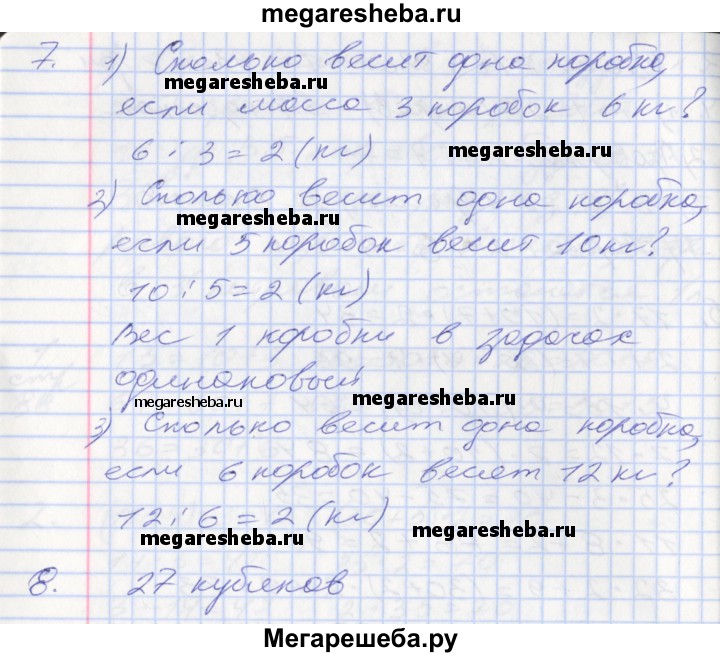 megaresheba.ru
7. 1) Сколько весит одна коробка,
megaresheba.ru
если масса 3 коробок 6 кг?
6 : 3 = 2 (кг) megaresheba.ru
2) Сколько весит одна коробка,
megaresheba.ru
если 5 коробок весит 10 кг?
10 : 5 = 2 (кг)
Вес 1 коробки в задачах
одинаковый megaresheba.ru
megaresheba.ru
3) Сколько весит одна коробка,
если 6 коробок весят 12 кг?
12 : 6 = 2 (кг) megaresheba.ru
megaresheba.ru
8. 27 кубиков
Мегарешеба.ру